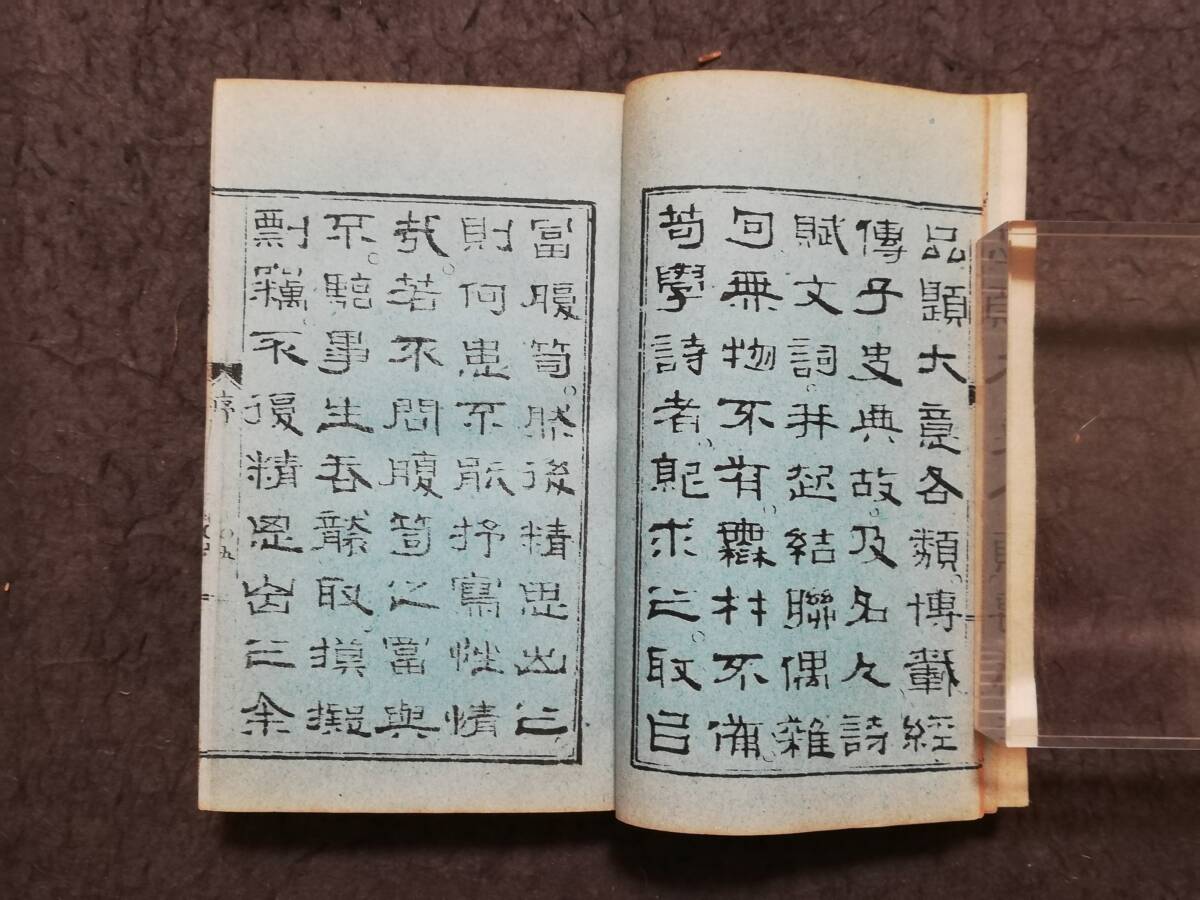 品題大意各類。博載經
傳子史典故。及名人詩
賦文詞。幷起結聯偶雜
句無物不有。靡材不備。
苟學詩者。記求之。取以
富腹笥。然後精思出之
則何患不能抒寫性情
哉。若不問腹笥之富與
不。騐事生吞
取摸擬
剽竊。不復精思出之余
序